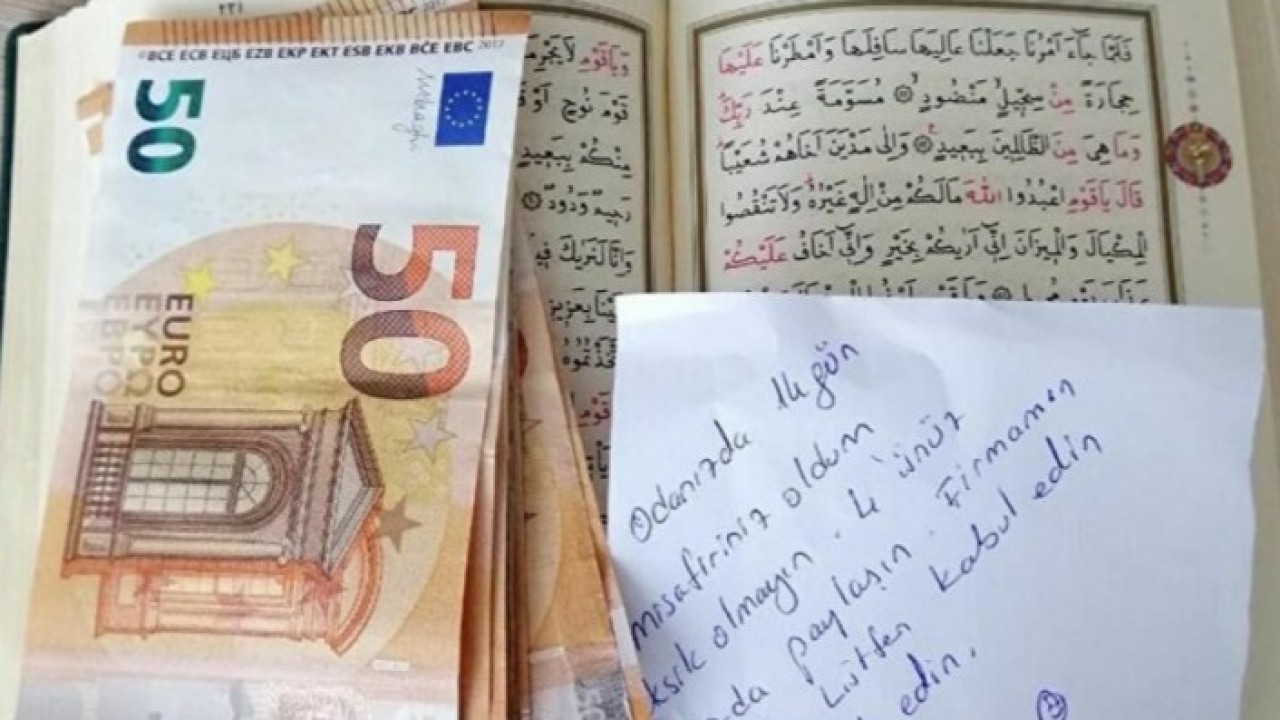 ٢٣١
©BCE ECB ЕЦБ EZB EKP EKT ESB EKB BĊE EBC 2017
50
50
EURO
ΕΥΡΩ
ЕВРО
وَيَاقَوْمِ لَا يَجْرِمَ
قَوْمَ نُوحٍ اَوْ قَ
مِنْكُمْ بِبَعِيدٍ
رَحِيمٌ وَدُودٌ
وَاِنَّا لَنَرٰيكَ فِي
فَلَمَّا جَٓاءَ اَمْرُنَا جَعَلْنَا عَالِيَهَا سَافِلَهَا وَاَمْطَرْنَا عَلَيْهَا
حِجَارَةً مِنْ سِجِّيلٍ مَنْضُودٍ مُسَوَّمَةً عِنْدَ رَبِّكَ
وَمَا هِيَ مِنَ الظَّالِمِينَ بِبَعِيدٍ وَاِلٰى مَدْيَنَ اَخَاهُمْ شُعَيْبًا
قَالَ يَاقَوْمِ اعْبُدُوا اللّٰهَ مَالَكُمْ مِنْ اِلٰهٍ غَيْرُهُ وَلَا تَنْقُصُوا
الْمِكْيَالَ وَالْمِيزَانَ اِنِّٓي اَرٰيكُمْ بِخَيْرٍ وَاِنِّٓي اَخَافُ عَلَيْكُمْ
Odanızda 14 gün
misafiriniz oldum
ksik olmayın.
da paylaşın. Firmamın
Lütfen kabul edin
edin.